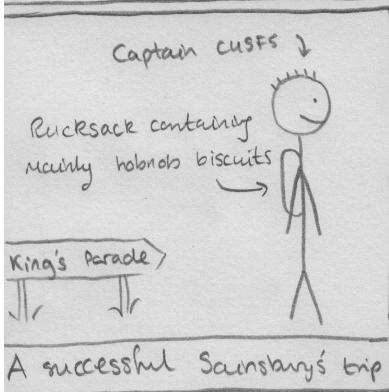 Captain CUSFS
Rucksack containing
mainly hobnob biscuits
King's Parade
A successful Sainsbury's trip